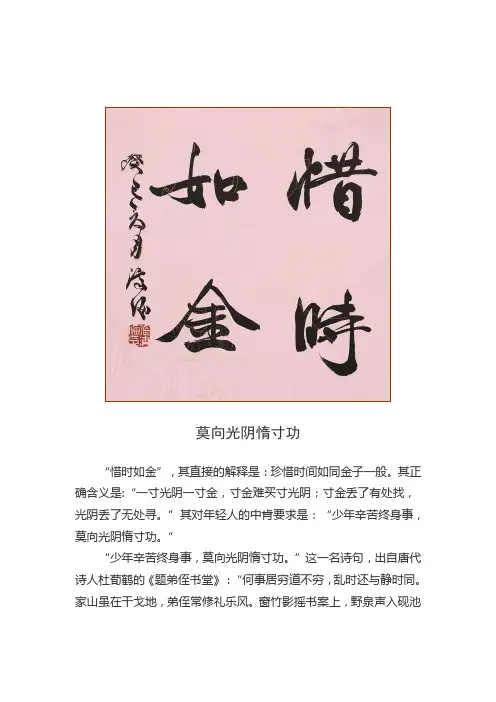 惜时
如金
癸巳
莫向光阴惰寸功
“惜时如金”，其直接的解释是：珍惜时间如同金子一般。其正
确含义是:“一寸光阴一寸金，寸金难买寸光阴；寸金丢了有处找，
光阴丢了无处寻。”其对年轻人的中肯要求是：“少年辛苦终身事，
莫向光阴惰寸功。“
“少年辛苦终身事，莫向光阴惰寸功。”这一名诗句，出自唐代
诗人杜荀鹤的《题弟侄书堂》：“何事居穷道不穷，乱时还与静时同。
家山虽在干戈地，弟侄常修礼乐风。窗竹影摇书案上，野泉声入砚池